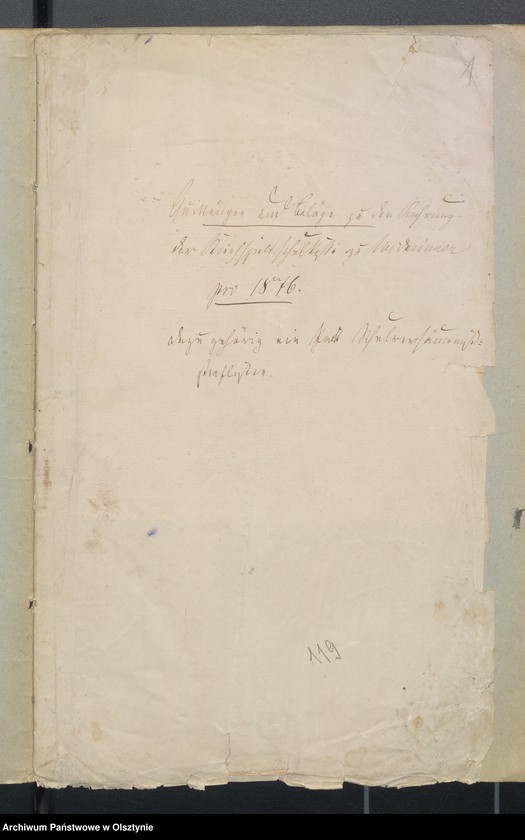 1
Quittungen und Beläge zu der Rechnung
der Kirchspielsschulkasse zu
pro 1876.
dazu gehörig ein Pack Schulversäumniß-
straflisten.
119
Archiwum Państwowe w Olsztynie